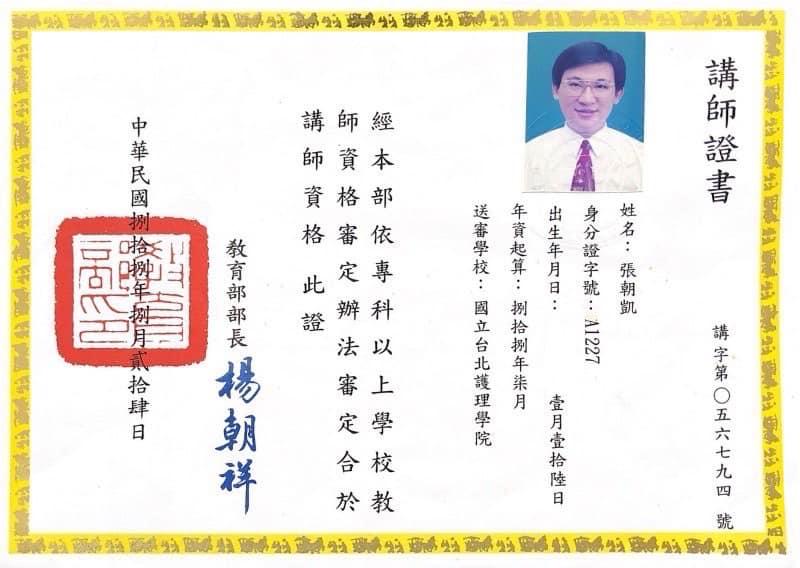 講師證書
講字第〇五六七九四 號
姓名：張朝凱
身分證字號：A1227
出生年月日： 壹月壹拾陸日
年資起算：捌拾捌年柒月
送審學校：國立台北護理學院
經本部依專科以上學校教
師資格審定辦法審定合於
講師資格 此證
教育部部長 楊朝祥
中華民國捌拾捌年捌月貳拾肆日